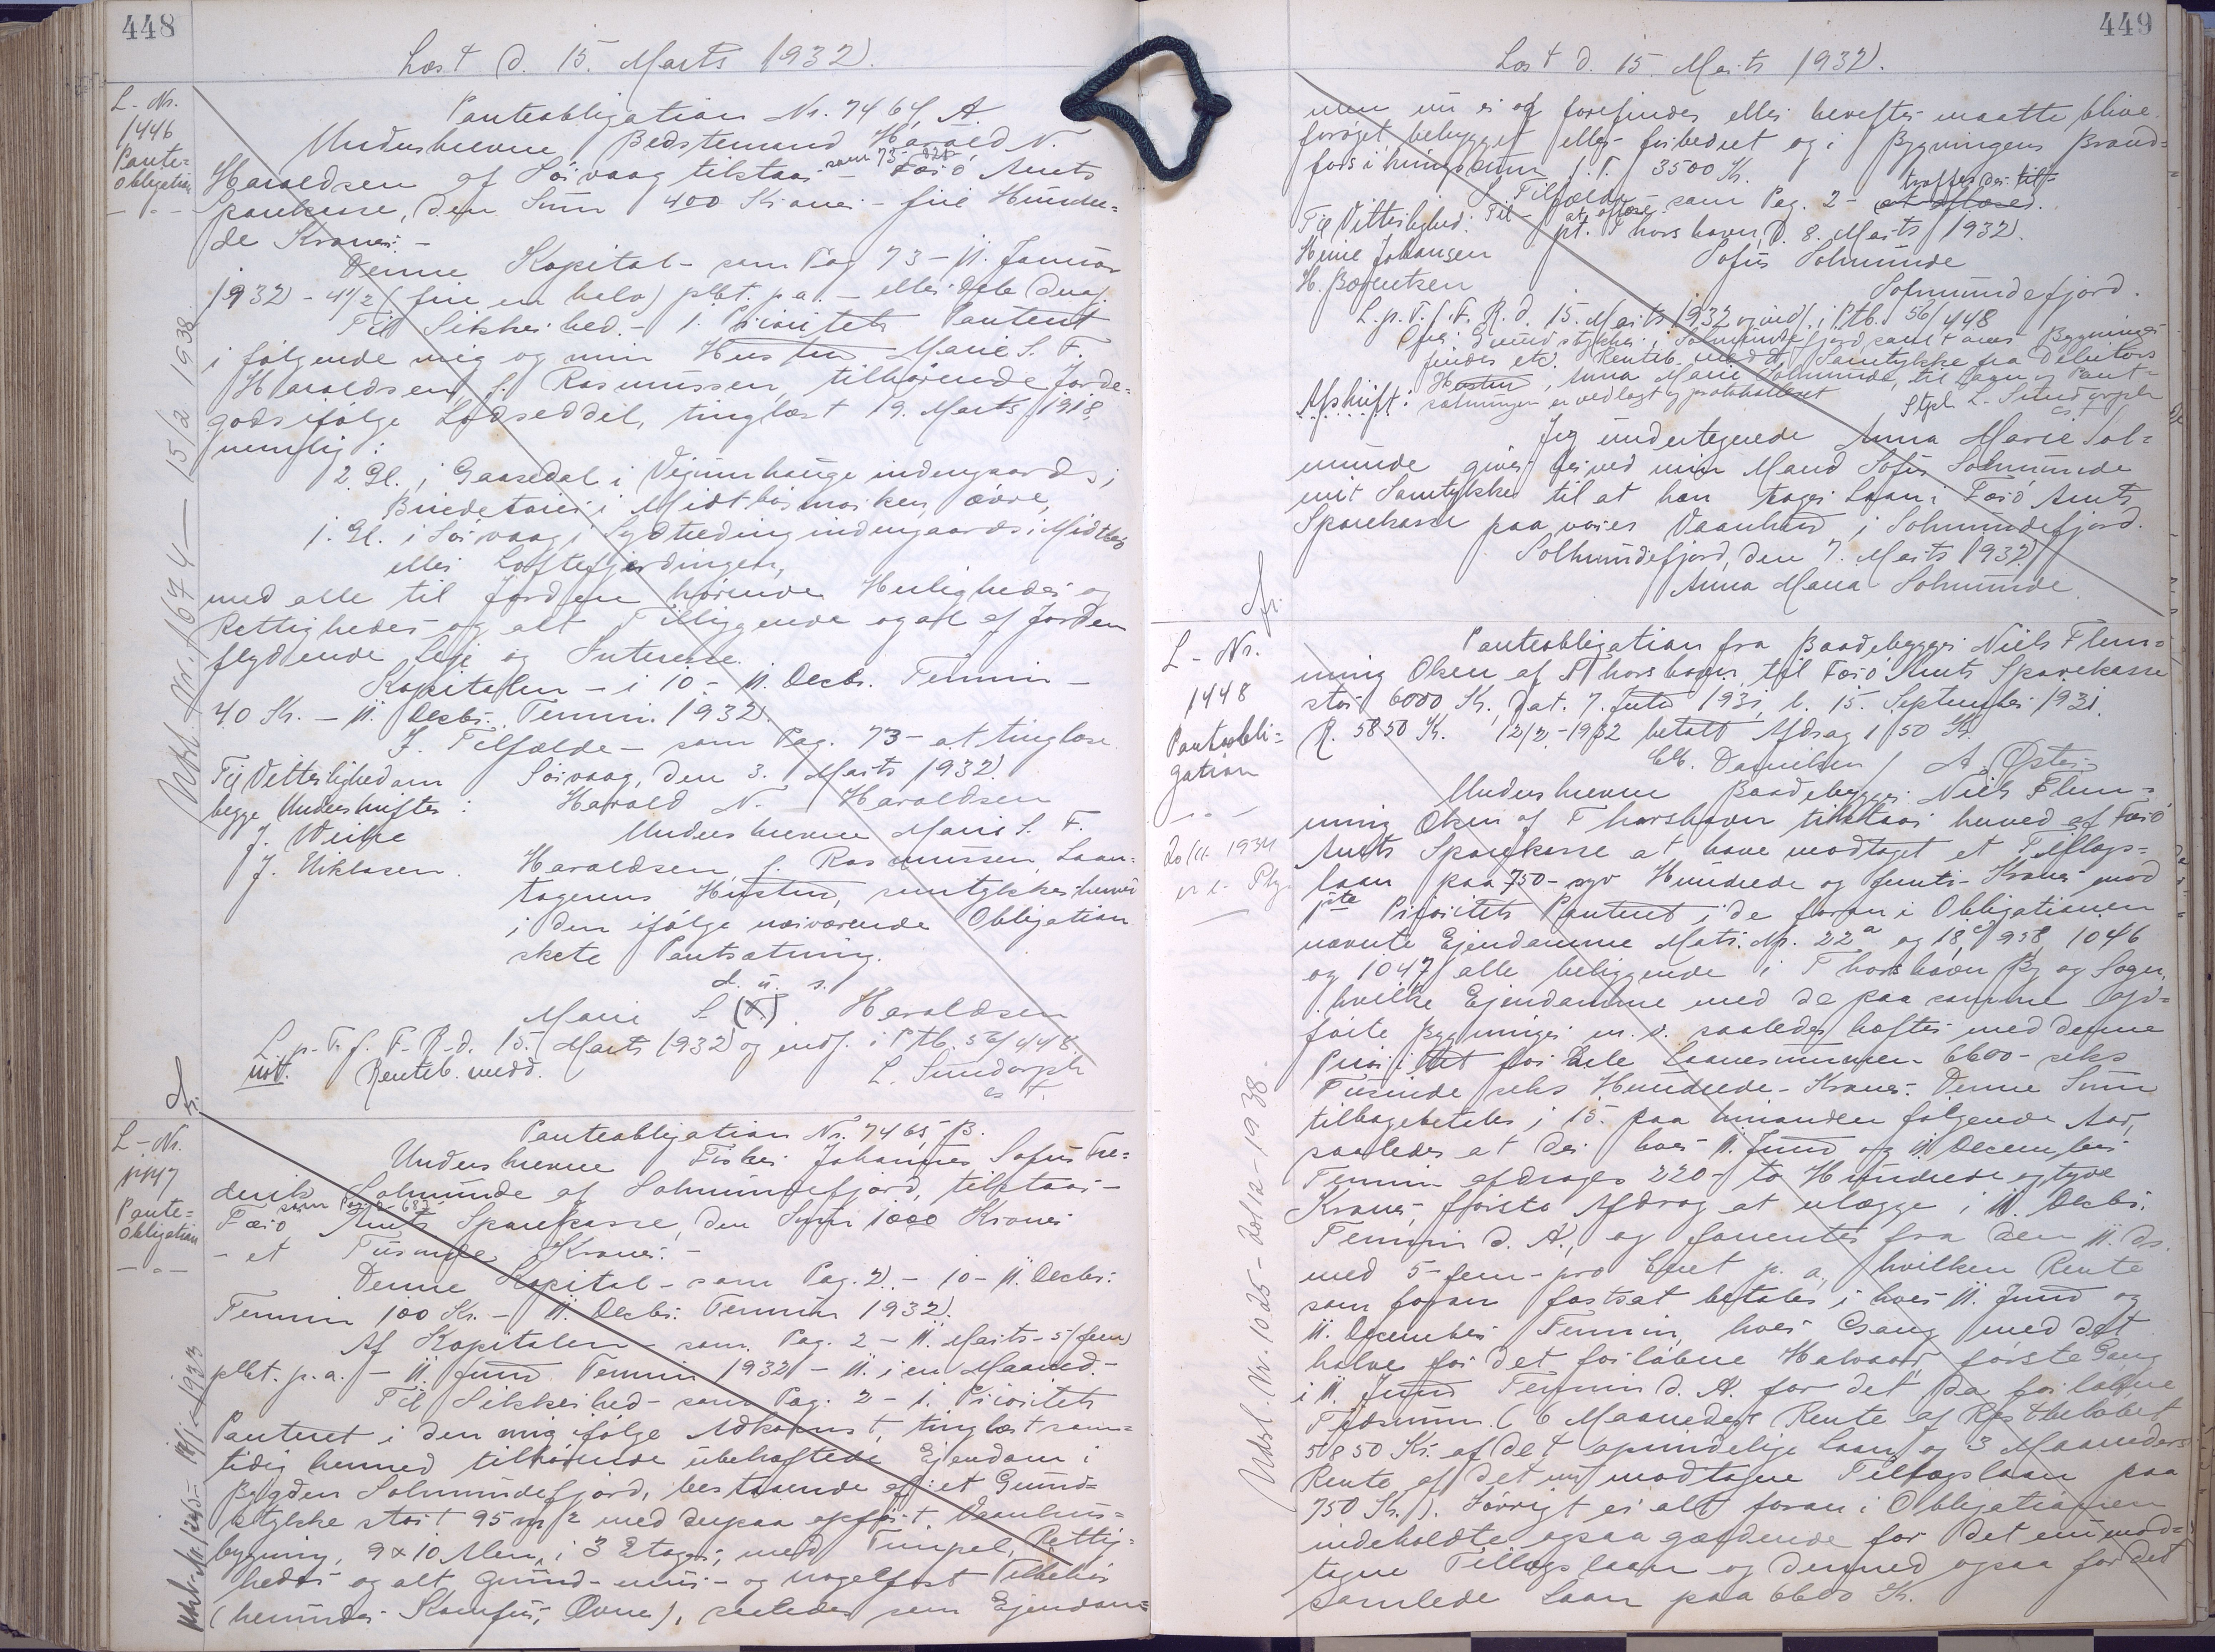 448
Læst d. 15. Marts 1932.
L-Nr.
1446
Pante-
obligation
Panteobligation Nr. 7464, A.
Underskrevne Bedstemand Harald N.
Haraldsen af Sörvaag tilstaar - som 73 - Færö Amts
Sparekasse, den Sum 400 Kroner - fire Hundre-
de Kroner. -
Denne Kapital - som Pag 73 - 11. Januar
1932 - 4 1/2 (fire en halv) pCt. p.a. -
Til Sikkerhed. - 1. Prioritets Panteret
i følgende mig og min Hustru Marie S. F.
Haraldsen, f. Rasmussen, tilhørende Jorde-
gods ifølge Lodseddel, tinglæst 19. Marts 1918,
nemlig:
2 Gl. i Gaasedal i Vijunnhauge indengaards,
i Midtbörmorken övre,
1. Gl. i Sörvaag i indengaards i Midtbö
eller Loftefjerdingen,
med alle til Jorden hörende Herligheder og
Rettigheder og alt Tilliggende og al af Jorden
flydende Leje og Interesse.
Kapitalen - i 10 - 11. Decbr. Termin -
40 Kr. - 11. Decbr. Termin 1932.
I Tilfælde - som Pag. 73 - at tinglæse.
Til Vitterlighed om
begge Underskrifter:
J. Weihe
J. Niklasen.
Sörvaag, den 3. Marts 1932.
Harald N. Haraldsen
Underskrevne Marie S. F.
Haraldsen, f. Rasmussen, Laan-
tagerens Hustru, samtykker herved
i den ifølge nærværende Obligation
skete Pantsætning.
d. u. s.
Marie S. (F.) Haraldsen
L. p. T. f. F. R. d. 15. Marts 1932 og indf. i Ptb. 56/448.
Renteb. medd.
L. Sundorph
cs F.
Udsl. Nr. 1674 - 15/2 1938
L-Nr.
1447
Pante-
obligation
Panteobligation Nr. 7465, B.
Underskrevne Fisker Johannes Sofus Fre-
derik Solmunde af Solmundefjord, tilstaar -
Færö Amts Sparekasse, den Sum 1000 Kroner
- et Tusinde Kroner. -
Denne Kapital - som Pag. 2 - 10 - 11. Decbr.
Termin 100 Kr. - 11. Decbr. Termin 1932.
Af Kapitalen - som Pag. 2 - 11. Marts - 5 (fem)
pCt. p.a. - 11. Juni Termin 1932 - 11. i en Maaned. -
Til Sikkerhed - som Pag. 2 - 1. Prioritets
Panteret i den mig ifølge Adkomst, tinglæst sam-
tidig hermed tilhörende ubehæftede Ejendom i
Bygden Solmundefjord, bestaaende af: et Grund-
stykke stort 95 m2 med derpaa opfört Vaanhus-
bygning, 9 x 10 Alen, i 3 Etager, med Tempel, Rettig-
heder og alt Grund- mur- og nagelfast Tilbehör
(herunder Komfur, Ovne), saaledes som Ejendom-
449
Læst d. 15. Marts 1932.
men nu er og forefindes eller herefter maatte blive
forøget, bebygget eller forbedret og i Bygningens Brand-
forsikringssum f. T. 3500 Kr.
I Tilfælde - som Pag. 2 -
pt. Thorshavn, d. 8. Marts 1932.
Til Vitterlighed:
Heine Johansen
H. Bærentsen
Sofus Solmunde
Solmundefjord.
L. p. T. f. F. R. d. 15. Marts 1932 og indf. i Ptb. 56/448
Hustru, Anna Marie Solmunde, til Laan og Pant-
sætningen er vedlagt og protokolleret
L. Sundorph
cs F.
Afskrift:
Jeg undertegnede Anna Marie Sol-
munde giver herved min Mand Sofus Solmunde
mit Samtykke til at han tager Laan i Færö Amts
Sparekasse paa vores Vaanhus i Solmundefjord.
Solmundefjord, den 7. Marts 1932
Anna Maria Solmunde.
L-Nr.
1448
Panteobli-
gation
Panteobligation fra Baadebygger Niels Flem-
ming Oken af Thorshavn til Færö Amts Sparekasse
stor 6000 Kr., dat. 7. Juli 1931, l. 15. September 1931.
R. 5850 Kr. 12/2-1932 betalt Afdrag 150 Kr.
Chr. Danielsen / A. Øster-
Underskrevne Baadebygger Niels Flem-
ming Oken af Thorshavn tilstaar herved af Færö
Amts Sparekasse at have modtaget et Tillægs-
laan paa 750 - syv Hundrede og femti - Kroner mod
1ste Prioritets Panteret i de foran i Obligationen
nævnte Ejendomme Matr. Nr. 22a og 18c, 958, 1046
og 1047, alle beliggende i Thorshavn By og Sogn,
hvilke Ejendomme med de paa samme op-
førte Bygninger m. v. saaledes hæfter med denne
Prioritet for hele Lånesummen 6600 - seks
Tusinde seks Hundrede - Kroner. Denne Sum
tilbagebetales i 15 paa hinanden følgende Aar,
saaledes at der hver 11. Juni og 11. December
Termin afdrages 220 - to Hundrede og tyve
Kroner, første Afdrag at erlægge i 11. Decbr.
Termin d. A., og forrentes fra den 11. ds.
med 5 - fem - pro Cent p. a., hvilken Rente
som foran fastsat betales i hver 11. Juni og
11. December Termin, hver Gang med det
halve for det forløbne Halvaar, første Gang
i 11. Juni Termin d. A. for det da forløbne
Tidsrum. (6 Maaneders Rente af Restbeløbet
5850 Kr. af det oprindelige Laan og 3 Maaneders
Rente af det nu modtagne Tillægslaan paa
750 Kr.). Iøvrigt er alt foran i Obligationen
indeholdte ogsaa gældende for det nu mod-
tagne Tillægslaan og dermed ogsaa for det
samlede Laan paa 6600 Kr.
Udsl. Nr. 1025 - 20/12-1938.